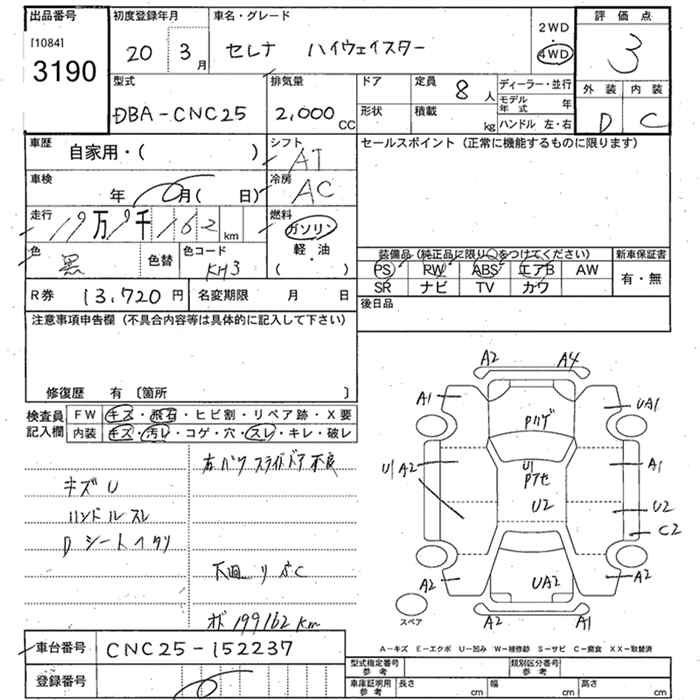 出品番号 初度登録年月 車名・グレード 2WD・4WD 評価点
[1084]
3190 20 3月 セレナ ハイウェイスター 3
型式 排気量 ドア 定員 8人 ディーラー・並行 外装 内装
DBA-CNC25 2,000cc 形状 積載 kg モデル年式 年 ハンドル 左・右 D C
車歴 自家用・( ) シフト AT セールスポイント(正常に機能するものに限ります)
車検 年 月( 日) 冷房 AC
走行 19万9千162km 燃料 ガソリン
色 黒 色替 色コード KH3 軽・油 ( )
装備品(純正品に限り○をつけてください) 新車保証書
PS RW ABS エアB AW 有・無
SR ナビ TV カワ
R券 13,720円 名変期限 月 日 後日品
注意事項申告欄(不具合内容等は具体的に記入して下さい)
修復歴 有〔箇所 〕
検査員記入欄 FW キズ・飛石・ヒビ割・リペア跡・X要
内装 キズ・汚レ・コゲ・穴・スレ・キレ・破レ
右パワスライドドア不良
キズU
ハンドルスレ
Dシートイタリ
下廻りサビC
オド199162km
A2 A4
A1 UA1
Pハゲ
U1 A2 U1 Pアセ A1
U2 U2
C2
A2 UA2 A2
スペア A2 A1
A-キズ E-エクボ U-凹み W-補修跡 S-サビ C-腐食 XX-取替済
車台番号 CNC25-152237
登録番号
型式指定番号 参考 類別区分番号 参考
車庫証明用 参考 長さ cm 幅 cm 高さ cm